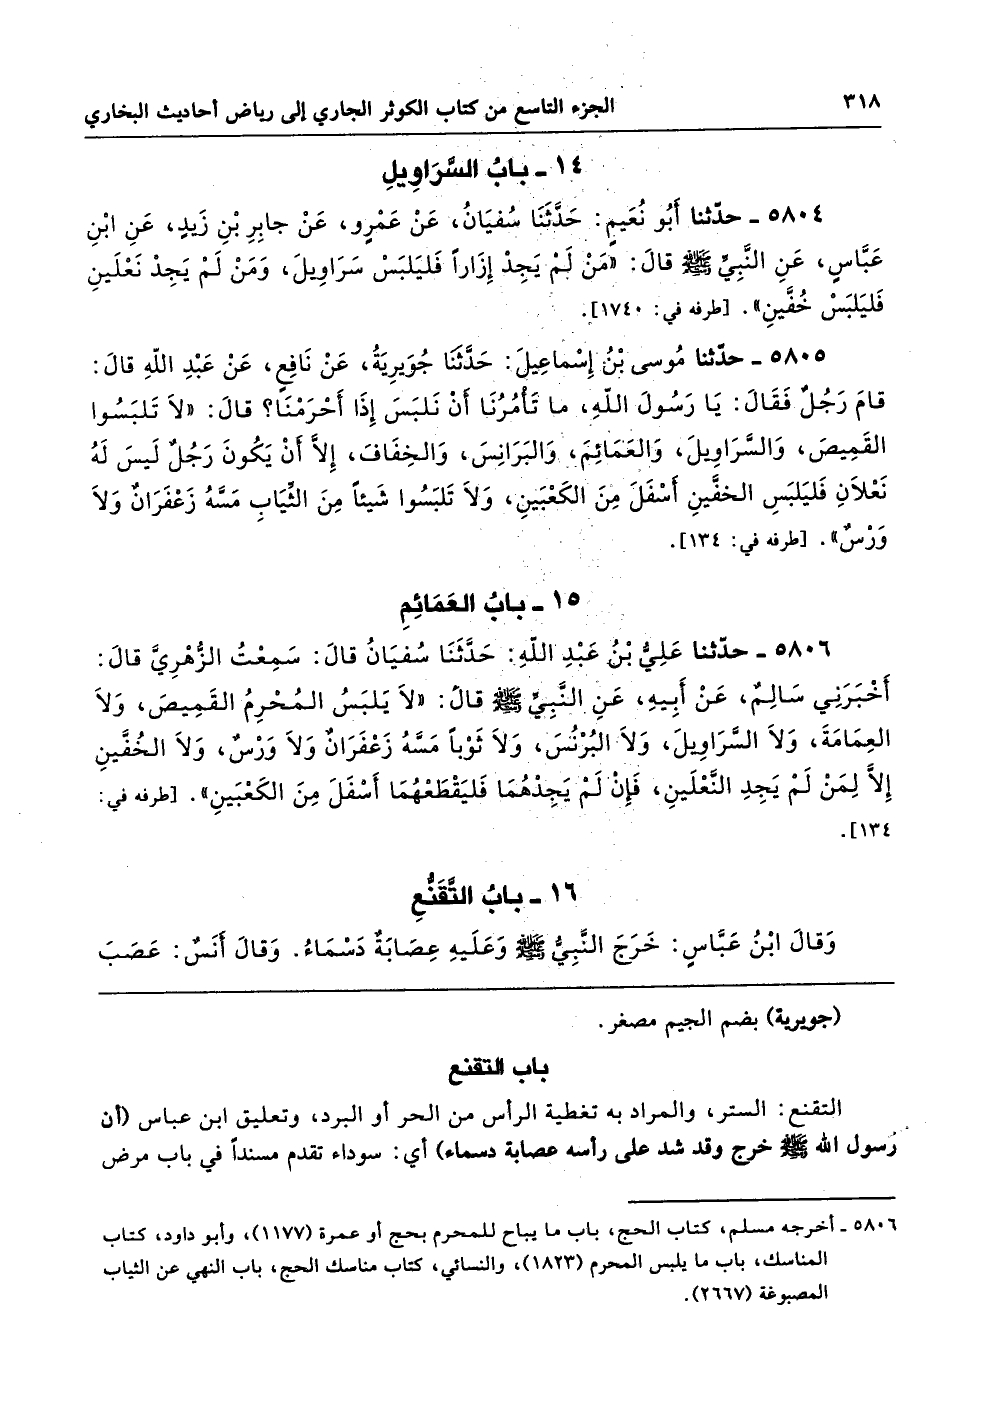 ٣١٨
الجزء التاسع من كتاب الكوثر الجاري إلى رياض أحاديث البخاري
١٤ ـ بابُ السَّرَاوِيلِ
٥٨٠٤ ـ حدّثنا أَبُو نُعَيمٍ: حَدَّثَنَا سُفيَانُ، عَنْ عَمْرٍو، عَنْ جابِرِ بْنِ زَيدٍ، عَنِ ابْنِ
عَبَّاسٍ، عَنِ النَّبِيِّ ﷺ قالَ: «مَنْ لَمْ يَجِدْ إِزَاراً فَليَلبَسْ سَرَاوِيلَ، وَمَنْ لَمْ يَجِدْ نَعْلَينِ
فَليَلبَسْ خُفَّينِ». [طرفه في: ١٧٤٠].
٥٨٠٥ ـ حدّثنا مُوسى بْنُ إِسْماعِيلَ: حَدَّثَنَا جُوَيرِيَةُ، عَنْ نَافِعٍ، عَنْ عَبْدِ اللّهِ قالَ:
قامَ رَجُلٌ فَقَالَ: يَا رَسُولَ اللّهِ، ما تَأْمُرُنَا أَنْ نَلبَسَ إِذَا أَحْرَمْنَا؟ قالَ: «لاَ تَلبَسُوا
القَمِيصَ، وَالسَّرَاوِيلَ، وَالعَمَائِمَ، وَالبَرَانِسَ، وَالخِفَافَ، إِلاَّ أَنْ يَكُونَ رَجُلٌ لَيسَ لَهُ
نَعْلاَنِ فَليَلبَسِ الخفَّينِ أَسْفَلَ مِنَ الكَعْبَينِ، وَلاَ تَلبَسُوا شَيئاً مِنَ الثِّيَابِ مَسَّهُ زَعْفَرَانٌ وَلاَ
وَرْسٌ». [طرفه في: ١٣٤].
١٥ ـ بابُ العَمَائِمِ
٥٨٠٦ ـ حدّثنا عَلِيُّ بْنُ عَبْدِ اللّهِ: حَدَّثَنَا سُفيَانُ قالَ: سَمِعْتُ الزُّهْرِيَّ قالَ:
أَخْبَرَنِي سَالِمٌ، عَنْ أَبِيهِ، عَنِ النَّبِيِّ ﷺ قالَ: «لاَ يَلبَسُ المُحْرِمُ القَمِيصَ، وَلاَ
العِمَامَةَ، وَلاَ السَّرَاوِيلَ، وَلاَ البُرْنُسَ، وَلاَ ثَوْباً مَسَّهُ زَعْفَرَانٌ وَلاَ وَرْسٌ، وَلاَ الخُفَّينِ
إِلاَّ لِمَنْ لَمْ يَجِدِ النَّعْلَينِ، فَإِنْ لَمْ يَجِدْهُمَا فَليَقْطَعْهُمَا أَسْفَلَ مِنَ الكَعْبَينِ». [طرفه في:
١٣٤].
١٦ ـ بابُ التَّقَنُّعِ
وَقالَ ابْنُ عَبَّاسٍ: خَرَجَ النَّبِيُّ ﷺ وَعَلَيهِ عِصَابَةٌ دَسْمَاءُ. وَقالَ أَنَسٌ: عَصَبَ
(جويرية) بضم الجيم مصغر.
باب التقنع
التقنع: الستر، والمراد به تغطية الرأس من الحر أو البرد، وتعليق ابن عباس (أن
رسول الله ﷺ خرج وقد شد على رأسه عصابة دسماء) أي: سوداء تقدم مسنداً في باب مرض
٥٨٠٦ ـ أخرجه مسلم، كتاب الحج، باب ما يباح للمحرم بحج أو عمرة (١١٧٧)، وأبو داود، كتاب
المناسك، باب ما يلبس المحرم (١٨٢٣)، والنسائي، كتاب مناسك الحج، باب النهي عن الثياب
المصبوغة (٢٦٦٧).